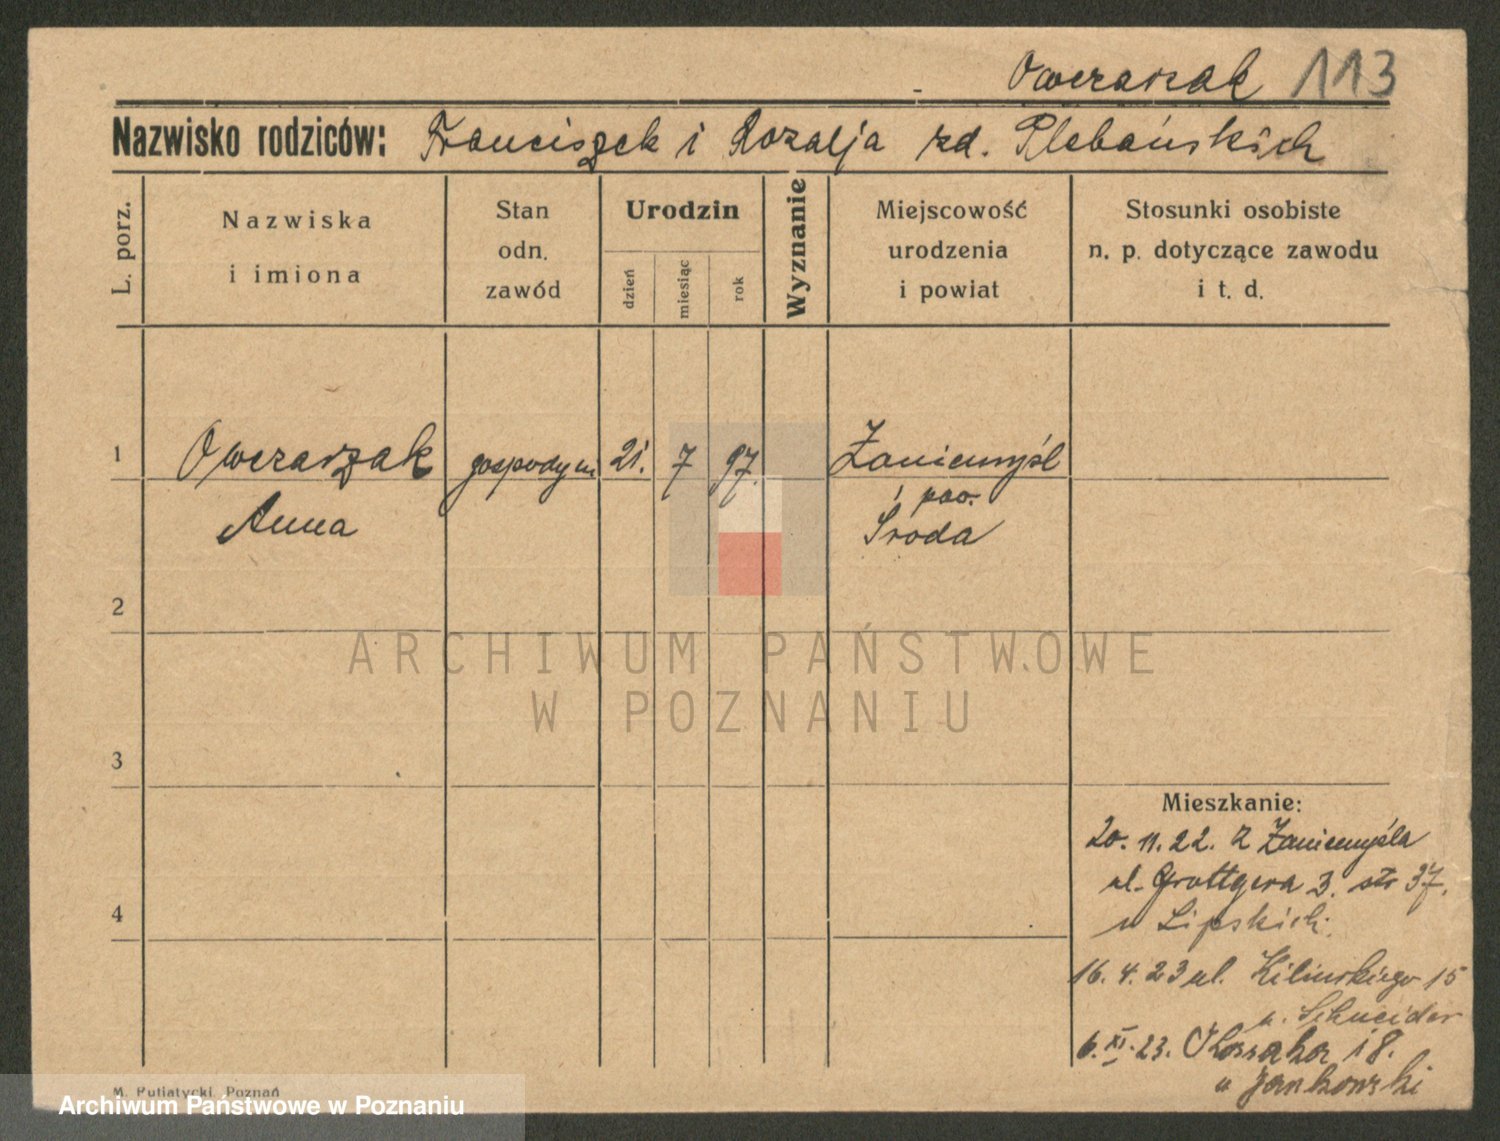 Owczarzak 113
Nazwisko rodziców: Franciszek i Rozalja zd. Plebańskich
L. porz.
Nazwiska
i imiona
Stan
odn.
zawód
Urodzin
dzień
miesiąc
rok
Wyznanie
Miejscowość
urodzenia
i powiat
Stosunki osobiste
n. p. dotyczące zawodu
i t. d.
1 Owczarzak gospodyni 21. 7 97. Zaniemyśl
pow.
Anna Środa
2
ARCHIWUM PAŃSTWOWE
W POZNANIU
3
Mieszkanie:
20. 11. 22. z Zaniemyśla
ul. Grottgera 3. str 37.
4
u Lipskich.
16. 4. 23 ul. Kilinskiego 15
u. Schneider
6. XI. 23. Kossaka 18.
u Jankowski
M. Putiatycki, Poznań
Archiwum Państwowe w Poznaniu